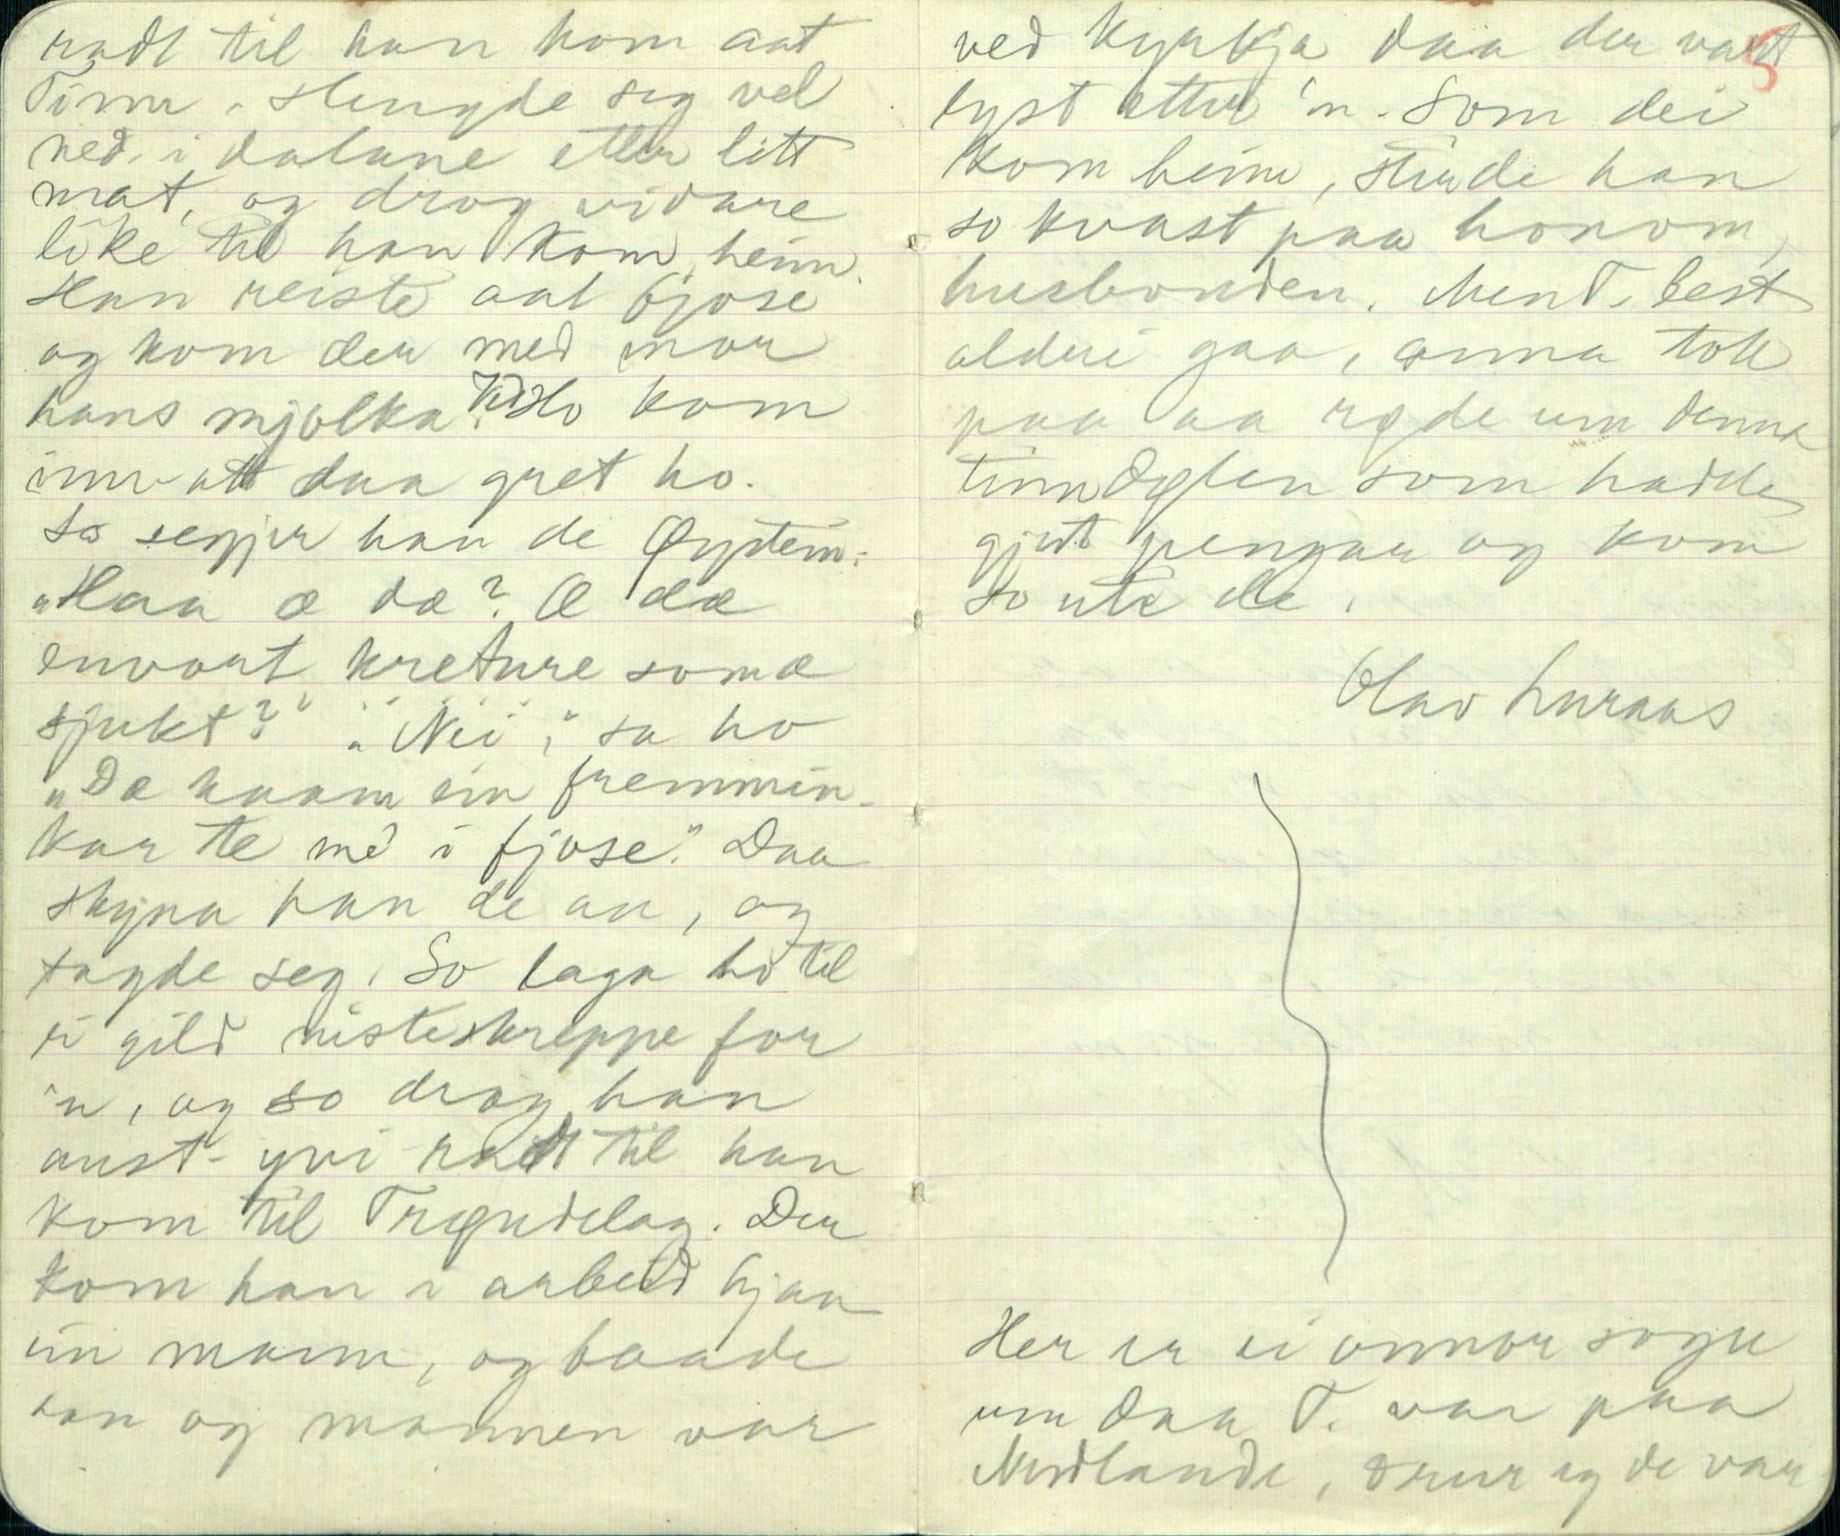 radt til han kom aat
Tinn. Slengde seg vel
ned i dalane etter litt
mat, og drog vidare
like til han kom heim.
Han reiste aat fjose
og kom der med mor
hans mjolka. Ho kom
inn att daa gret ho.
So segjer han de Øystein:
"Haa æ dæ? Æ dæ
envort kreture som æ
sjukt?" "Nei", sa ho
"Dæ kaam ein fremmin-
kar te me i fjose." Daa
skjøna han de aa, og
tagde seg. So laga ho til
ei gild nisteskreppe for
'n, og so drog han
aust-yvi radt til han
kom til Trøndelag. Der
kom han i arbeid hjaa
ein mann, og baade
han og mannen var
5
ved kyrkja daa der vart
lyst etter 'n. Som dei
kom heim, stirde han
so kvast paa honom,
husbonden. Men T. lest
aldri gaa, anna tok
paa aa røde um denna
tinndølen som hadde
gjort pengar og kom
so ute de.
Olav Luraas
Her er ei onnor sogu
um daa T. var paa
Nordlande, trur eg de var